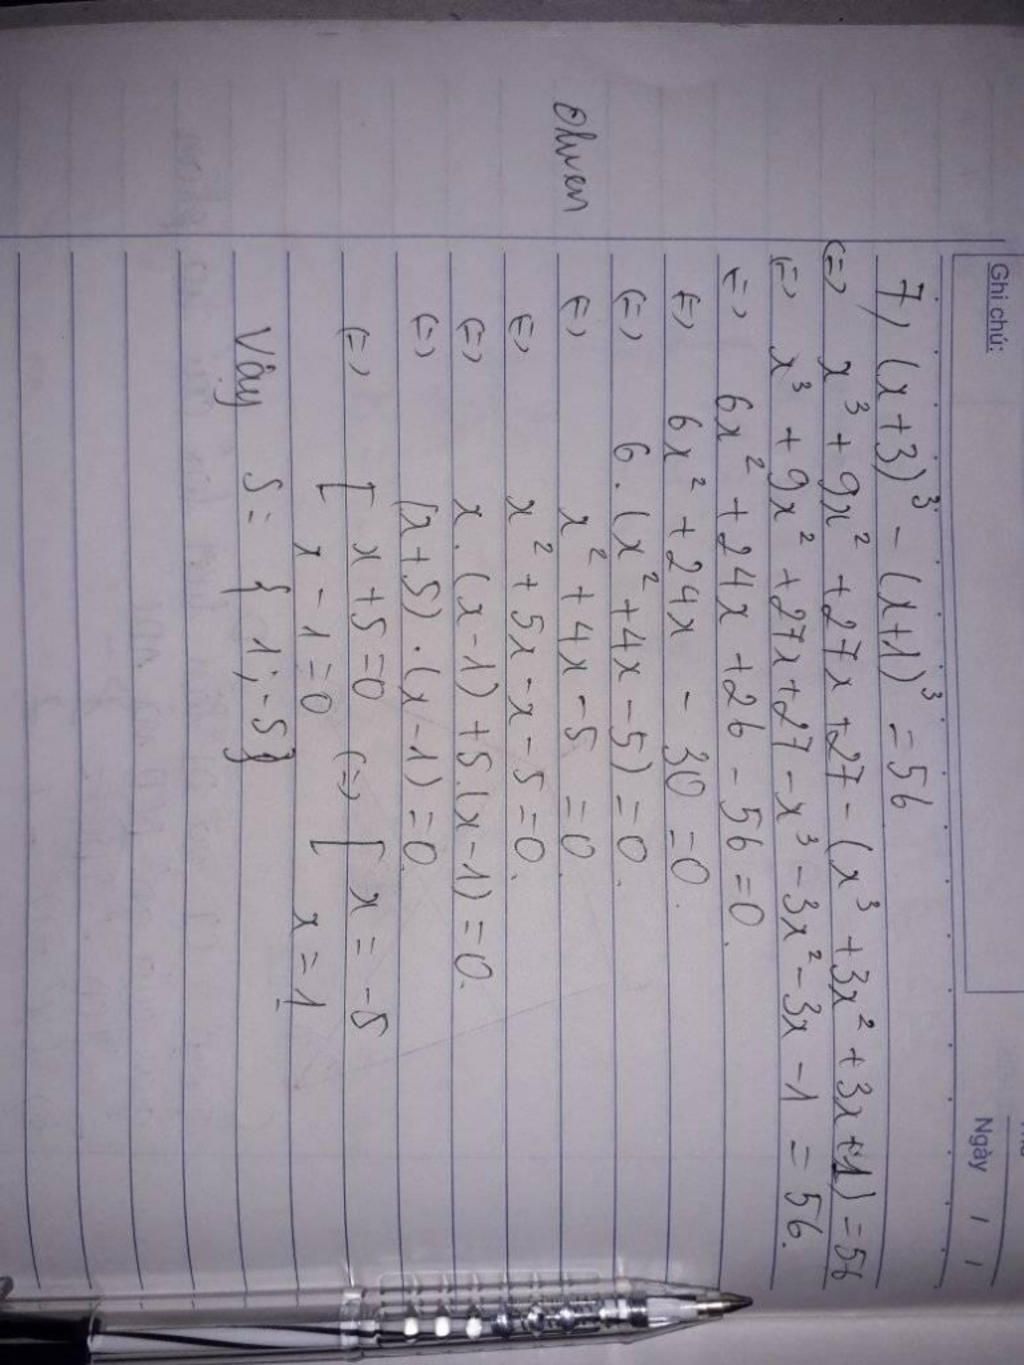 Ghi chú:
Ngày / /
7, (x+3)³ - (x+1)³ = 56
(=) x³ + 9x² + 27x + 27 - (x³ + 3x² + 3x + 1) = 56
(=) x³ + 9x² + 27x + 27 - x³ - 3x² - 3x - 1 = 56.
(=) 6x² + 24x + 26 - 56 = 0.
(=) 6x² + 24x - 30 = 0.
(=) 6. (x² + 4x - 5) = 0.
(=) x² + 4x - 5 = 0.
(=) x² + 5x - x - 5 = 0.
(=) x. (x - 1) + 5. (x - 1) = 0.
(=) (x + 5) . (x - 1) = 0.
(=) [ x + 5 = 0 (=) [ x = -5
x - 1 = 0 x = 1
Vậy S = { 1; -5}